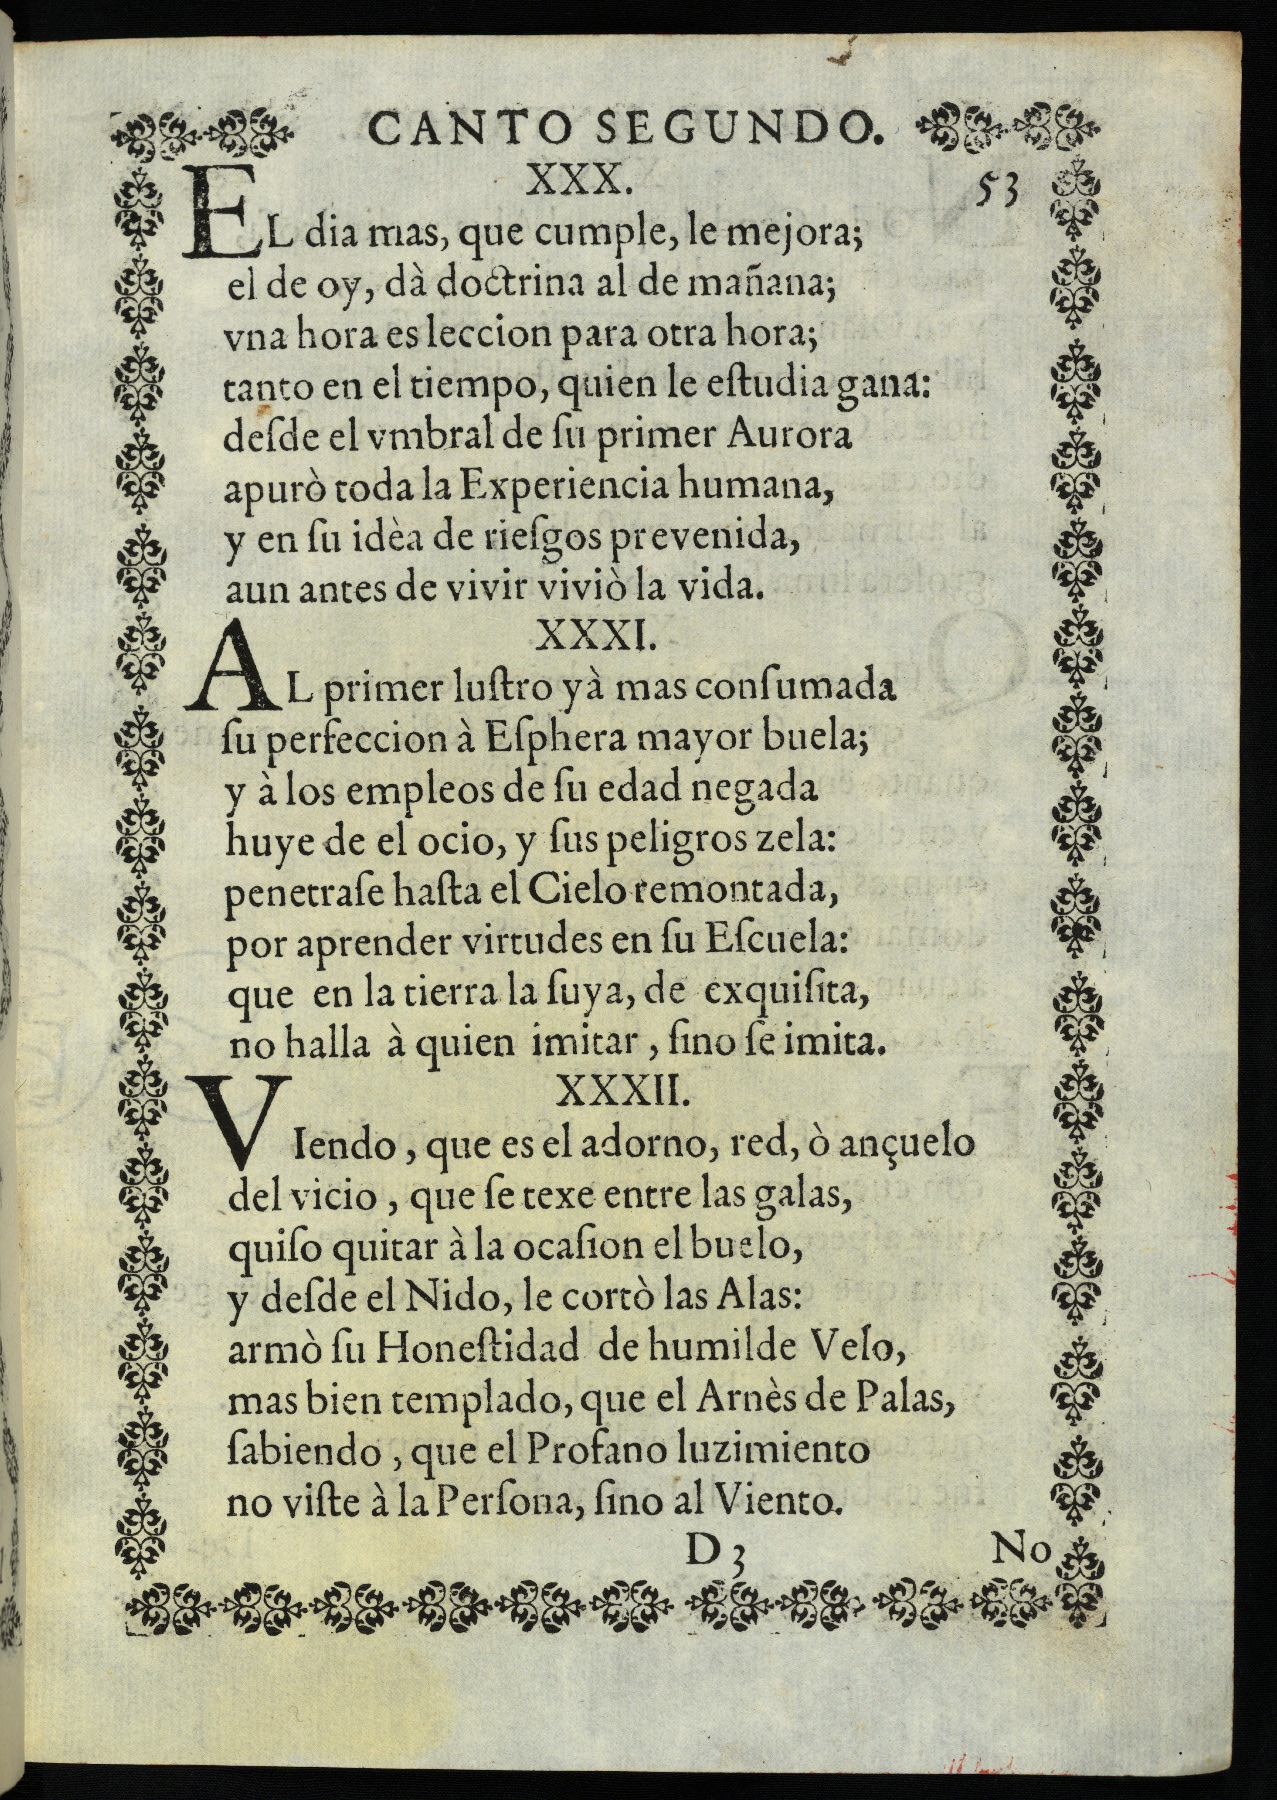 CANTO SEGUNDO.
XXX.
53
EL dia mas, que cumple, le mejora;
el de oy, dà doctrina al de mañana;
vna hora es leccion para otra hora;
tanto en el tiempo, quien le eſtudia gana:
deſde el vmbral de ſu primer Aurora
apurò toda la Experiencia humana,
y en ſu idèa de rieſgos prevenida,
aun antes de vivir viviò la vida.
XXXI.
AL primer luſtro yà mas conſumada
ſu perfeccion à Eſphera mayor buela;
y à los empleos de ſu edad negada
huye de el ocio, y ſus peligros zela:
penetraſe haſta el Cielo remontada,
por aprender virtudes en ſu Eſcuela:
que en la tierra la ſuya, de exquiſita,
no halla à quien imitar, ſino ſe imita.
XXXII.
VIendo, que es el adorno, red, ò ançuelo
del vicio, que ſe texe entre las galas,
quiſo quitar à la ocaſion el buelo,
y deſde el Nido, le cortò las Alas:
armò ſu Honeſtidad de humilde Velo,
mas bien templado, que el Arnès de Palas,
ſabiendo, que el Profano luzimiento
no viſte à la Perſona, ſino al Viento.
D 3
No